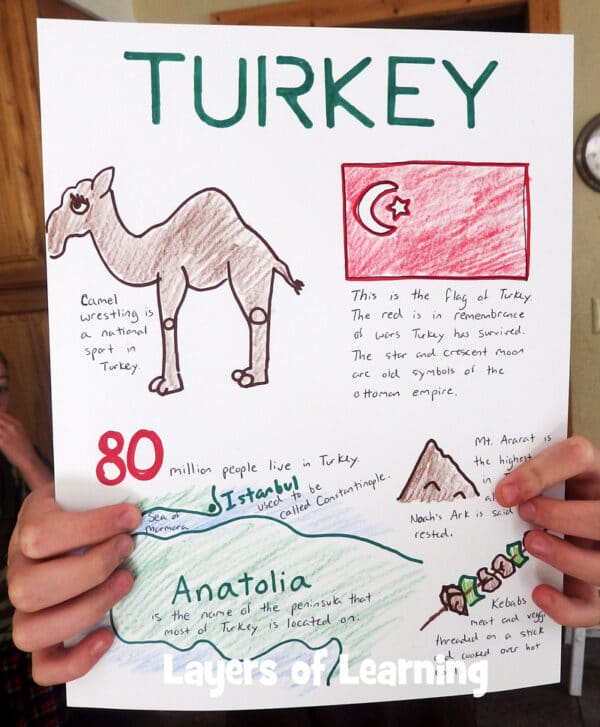 TURKEY
Camel
wrestling is
a national
sport in
Turkey.
This is the flag of Turkey.
The red is in remembrance
of wars Turkey has survived.
The star and crescent moon
are old symbols of the
ottoman empire.
80 million people live in Turkey.
Mt. Ararat is
the highest
in
Noah's Ark is said
rested.
Istanbul
used to be
called Constantinople.
Sea of
marmara
Anatolia
is the name of the peninsula that
most of Turkey is located on.
Kebabs
meat and
threaded on a stick
cooked over hot
Layers of Learning